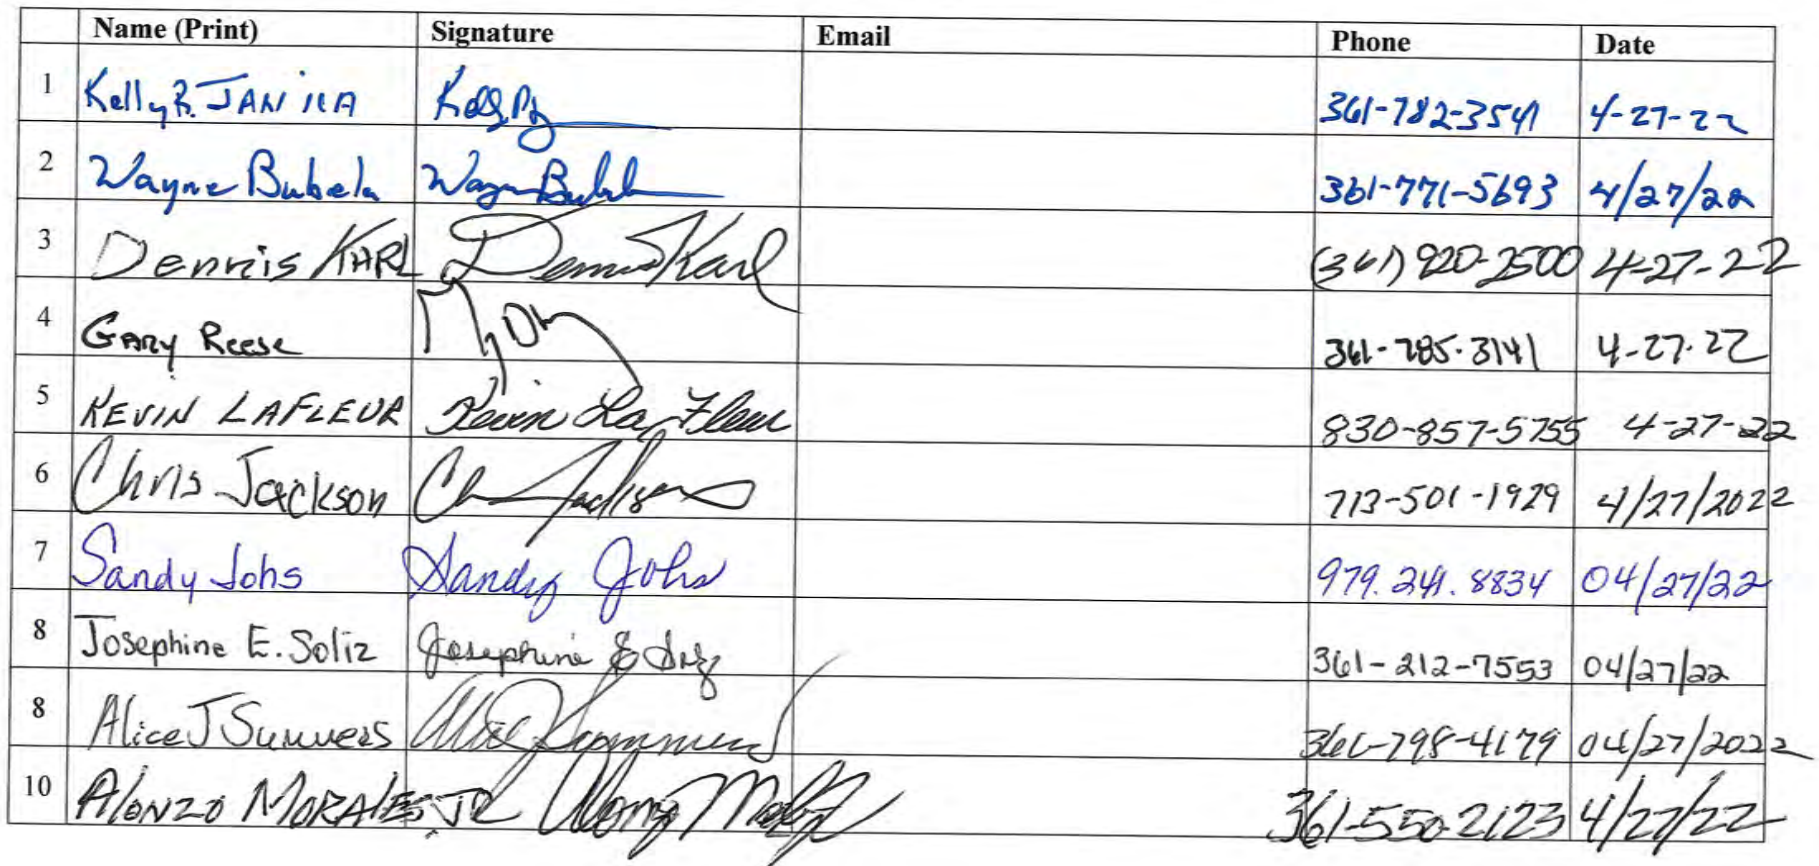 Name (Print) Signature Email Phone Date
1 Kelly R. JANICA 361-782-3541 4-27-22
2 Wayne Bubela Wayne Bubela 361-771-5693 4/27/22
3 Dennis KARL Dennis Karl (361) 920-2500 4-27-22
4 GARY Reese 361-785-3141 4-27-22
5 KEVIN LAFLEUR Kevin LaFleur 830-857-5755 4-27-22
6 Chris Jackson Chris Jackson 713-501-1929 4/27/2022
7 Sandy Johs Sandy Johs 979.241.8834 04/27/22
8 Josephine E. Soliz Josephine E Soliz 361-212-7553 04/27/22
8 Alice J Summers Alice J Summers 361-798-4179 04/27/2022
10 Alonzo MORALES JR Alonzo Morales 361-550-2123 4/27/22